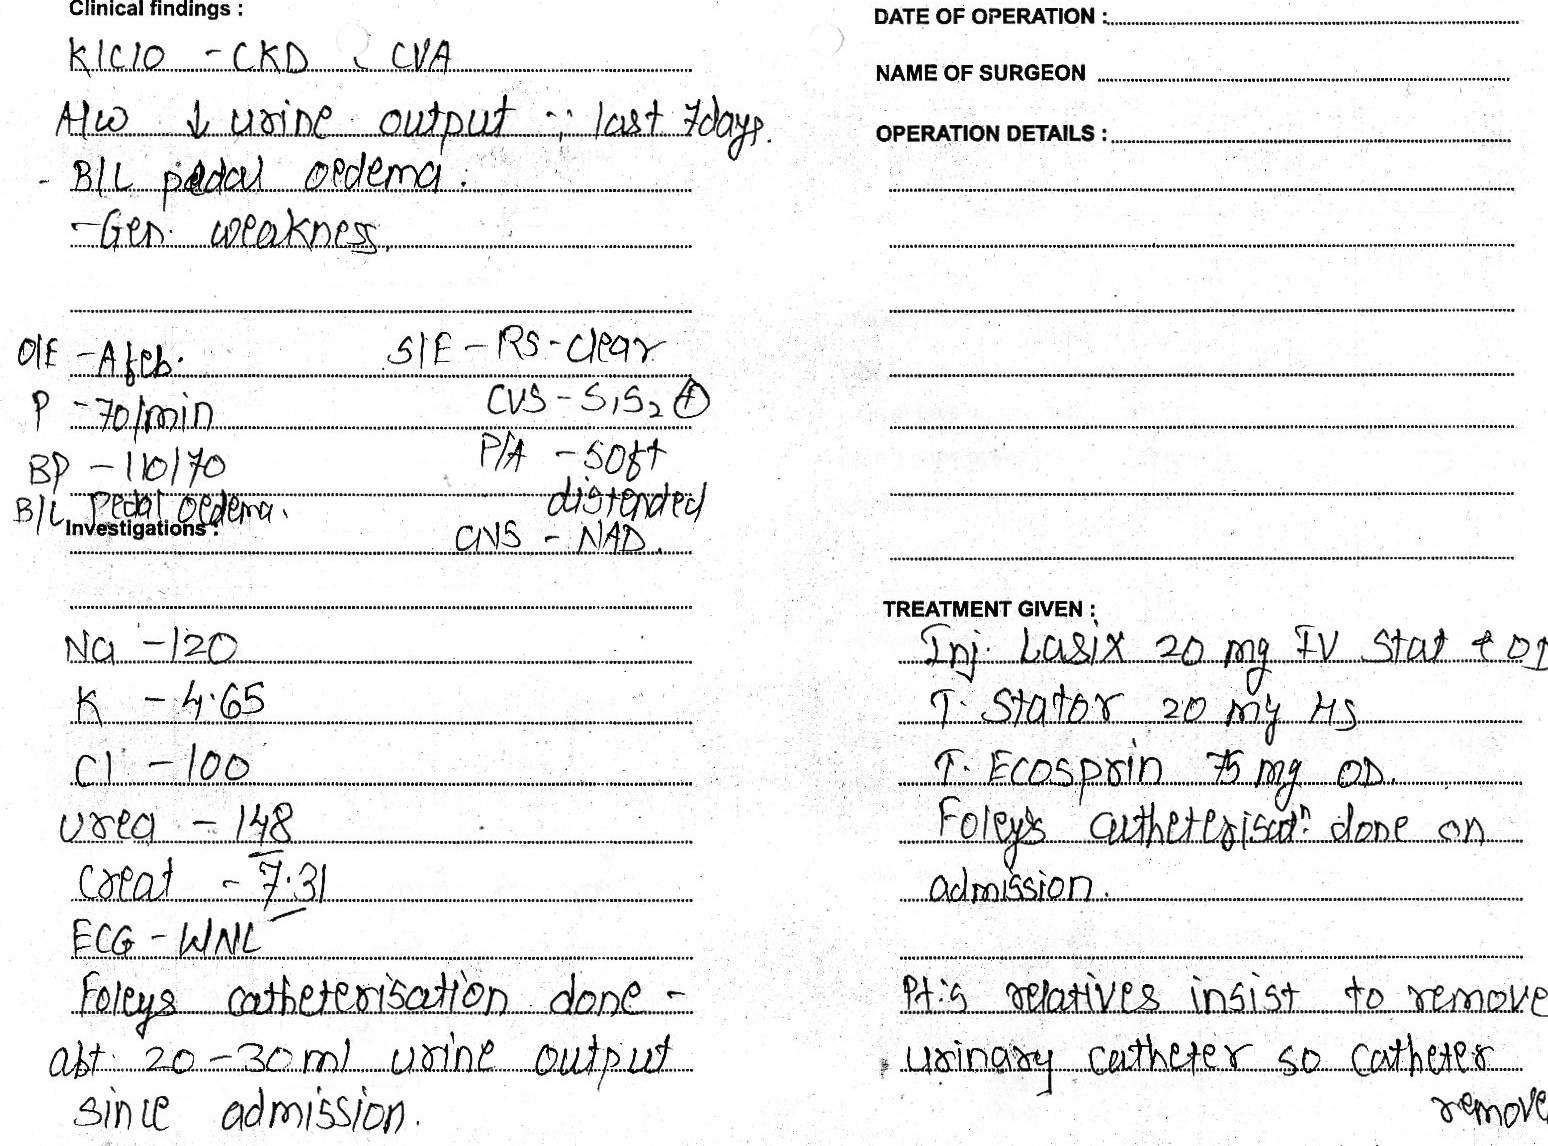 Clinical findings :
K/C/O - CKD CVA
A/w ↓ urine output ∵ last 7days.
- B/L pedal oedema.
- Gen. weakness.
O/E - Afeb.
P - 70/min
BP - 110/70
B/L pedal oedema.
S/E - RS - clear
CVS - S1S2 ⊕
P/A - soft
distended
CNS - NAD.
Investigations :
Na - 120
K - 4.65
Cl - 100
urea - 148
Creat - 7.31
ECG - WNL
Foleys catheterisation done -
abt. 20-30ml urine output
since admission.
DATE OF OPERATION :
NAME OF SURGEON
OPERATION DETAILS :
TREATMENT GIVEN :
Inj. Lasix 20 mg IV Stat &
T. Stator 20 mg HS
T. Ecosprin 75 mg OD.
Foley's catheterisatn. done on
admission.
Pt's relatives insist to remove
urinary catheter so catheter
remove